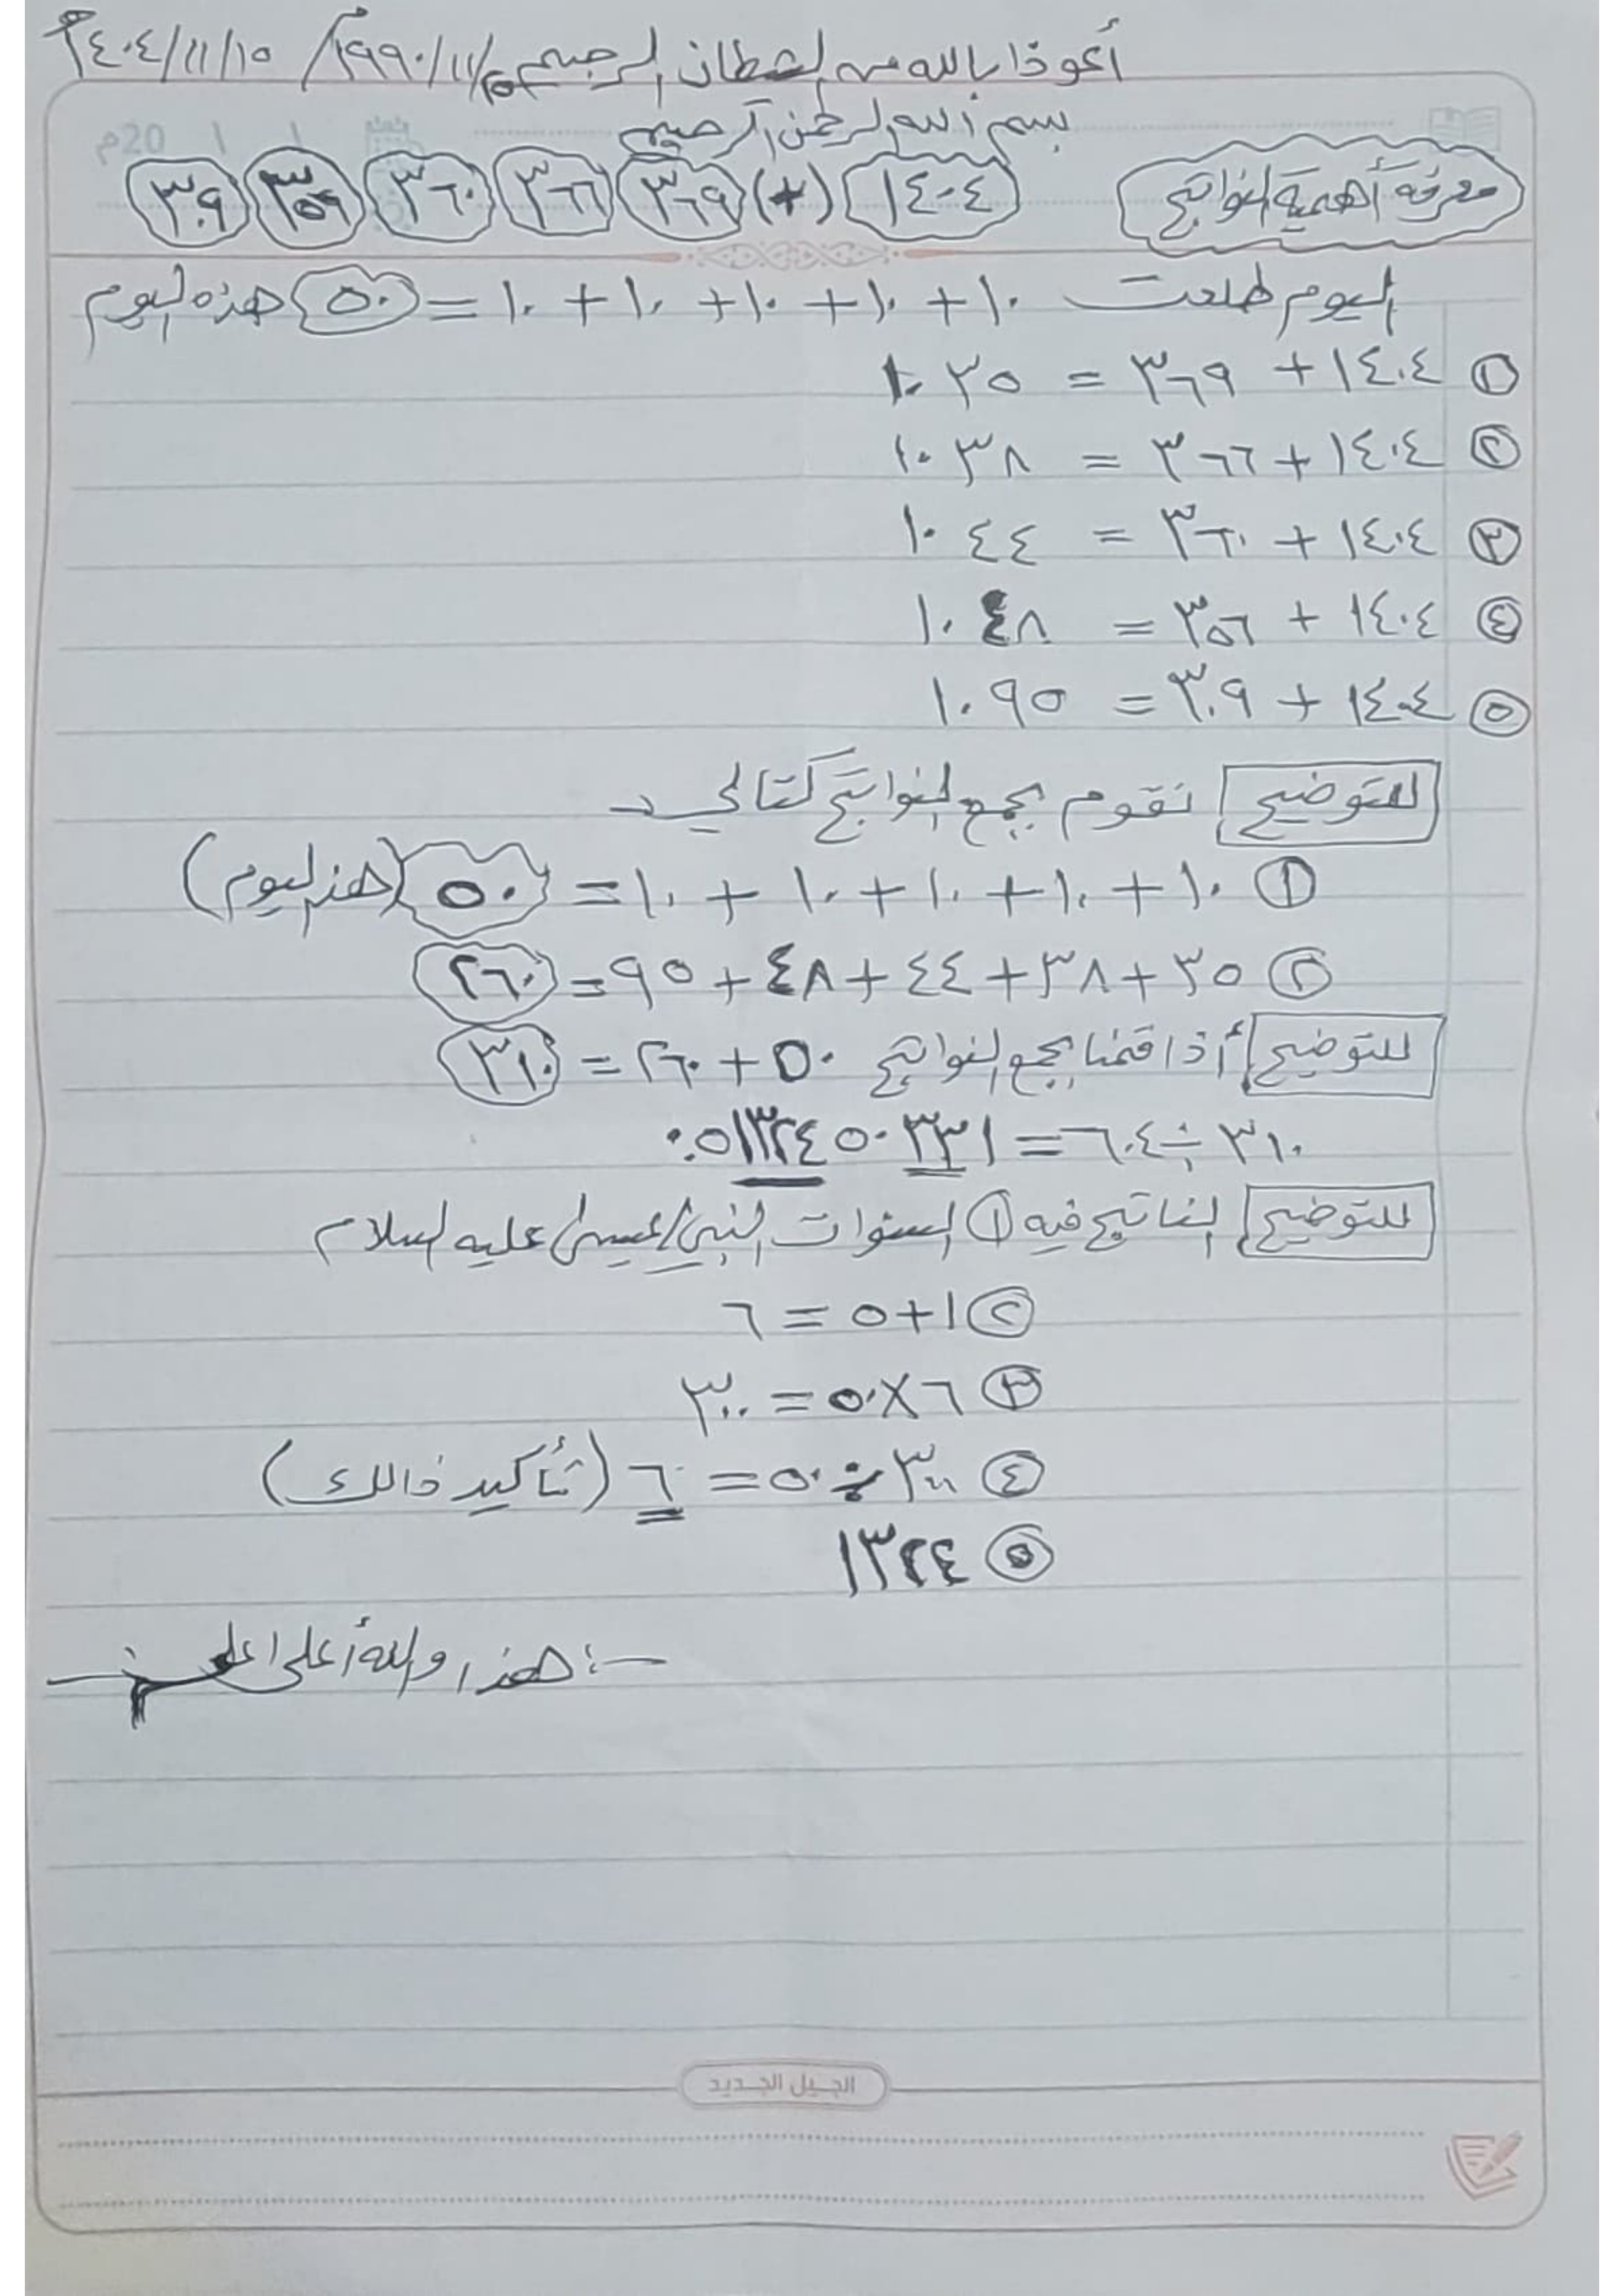 أعوذ بالله من الشطان الرجيم ١٩٩٠/١١/٢٥م / ١٤٠٤/١١/١٥هـ
بسم الله الرحمن الرحيم
20م / /
معرفة أهمية النواتج ١٤٠٤ (+) ٣٦٩ ٣٦٦ ٣٦٠ ٣٥٦ ٣٠٩
اليوم طلعت ١٠ + ١٠ + ١٠ + ١٠ + ١٠ = ٥٠ هذه اليوم
١ ١٤٠٤ + ٣٦٩ = ١٠٣٥
٢ ١٤٠٤ + ٣٦٦ = ١٠٣٨
٣ ١٤٠٤ + ٣٦٠ = ١٠٤٤
٤ ١٤٠٤ + ٣٥٦ = ١٠٤٨
٥ ١٤٠٤ + ٣٠٩ = ١٠٩٥
للتوضيح نقوم بجمع النواتج كتالي
١ ١٠ + ١٠ + ١٠ + ١٠ + ١٠ = ٥٠ (هذا ليوم)
٢ ٣٥ + ٣٨ + ٤٤ + ٤٨ + ٩٥ = ٢٦٠
للتوضيح أذا قمنا بجمع النواتج ٥٠ + ٢٦٠ = ٣١٠
٣١٠ ÷ ٦٠٤ = ٠.٥١٣٢٤٥٠٣٣١
للتوضيح الناتج فيه ١ السنوات النبي/عيسى/ عليه السلام
٢ ١ + ٥ = ٦
٣ ٦ × ٥٠ = ٣٠٠
٤ ٣٠٠ ÷ ٥٠ = ٦ (تأكيد ذالك)
٥ ١٣٢٤
هذا والله أعلى اعلم
الجيل الجديد